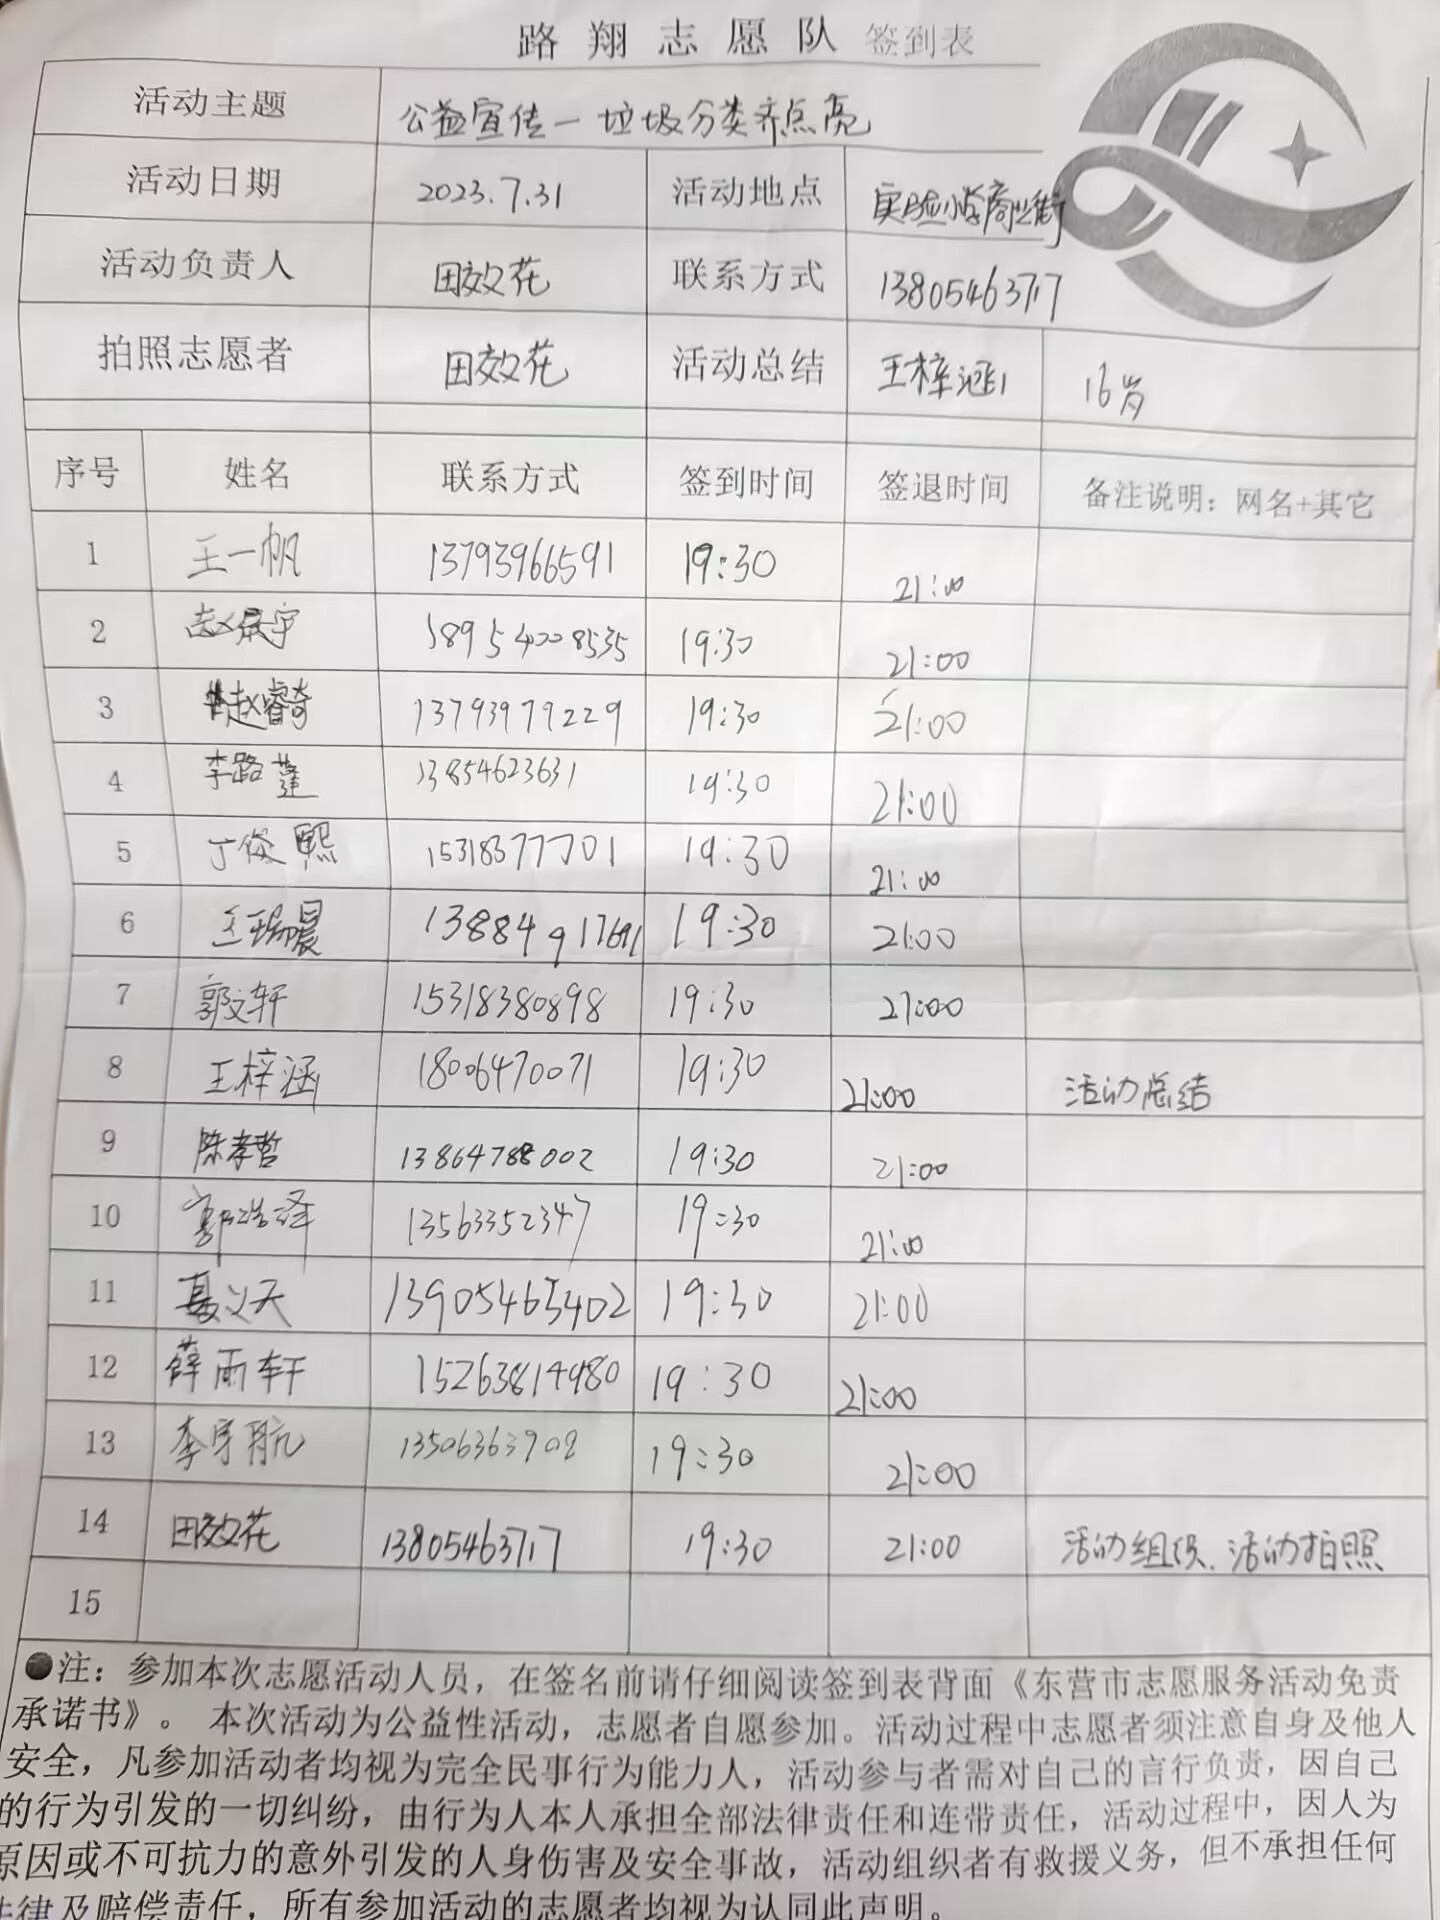 路翔志愿队 签到表
活动主题 公益宣传一垃圾分类齐点亮
活动日期 2023.7.31 活动地点 实验小学商业街
活动负责人 田效花 联系方式 13805463717
拍照志愿者 田效花 活动总结 王梓涵 16岁
序号 姓名 联系方式 签到时间 签退时间 备注说明：网名+其它
1 王一帆 13793966591 19:30 21:00
2 赵晨宇 18954008535 19:30 21:00
3 赵睿奇 13793979229 19:30 21:00
4 李路莲 13854623631 19:30 21:00
5 丁俊熙 15318377701 19:30 21:00
6 13884917691 19:30 21:00
7 郭文轩 15318380898 19:30 21:00
8 王梓涵 18006470071 19:30 21:00 活动总结
9 陈孝哲 13864788002 19:30 21:00
10 郭浩泽 13563352347 19:30 21:00
11 义天 13905465402 19:30 21:00
12 薛雨轩 15263814980 19:30 21:00
13 李宇航 13506363902 19:30 21:00
14 田效花 13805463717 19:30 21:00 活动组织、活动拍照
15
●注：参加本次志愿活动人员，在签名前请仔细阅读签到表背面《东营市志愿服务活动免责
承诺书》。本次活动为公益性活动，志愿者自愿参加。活动过程中志愿者须注意自身及他人
安全，凡参加活动者均视为完全民事行为能力人，活动参与者需对自己的言行负责，因自己
的行为引发的一切纠纷，由行为人本人承担全部法律责任和连带责任，活动过程中，因人为
原因或不可抗力的意外引发的人身伤害及安全事故，活动组织者有救援义务，但不承担任何
法律及赔偿责任，所有参加活动的志愿者均视为认同此声明。